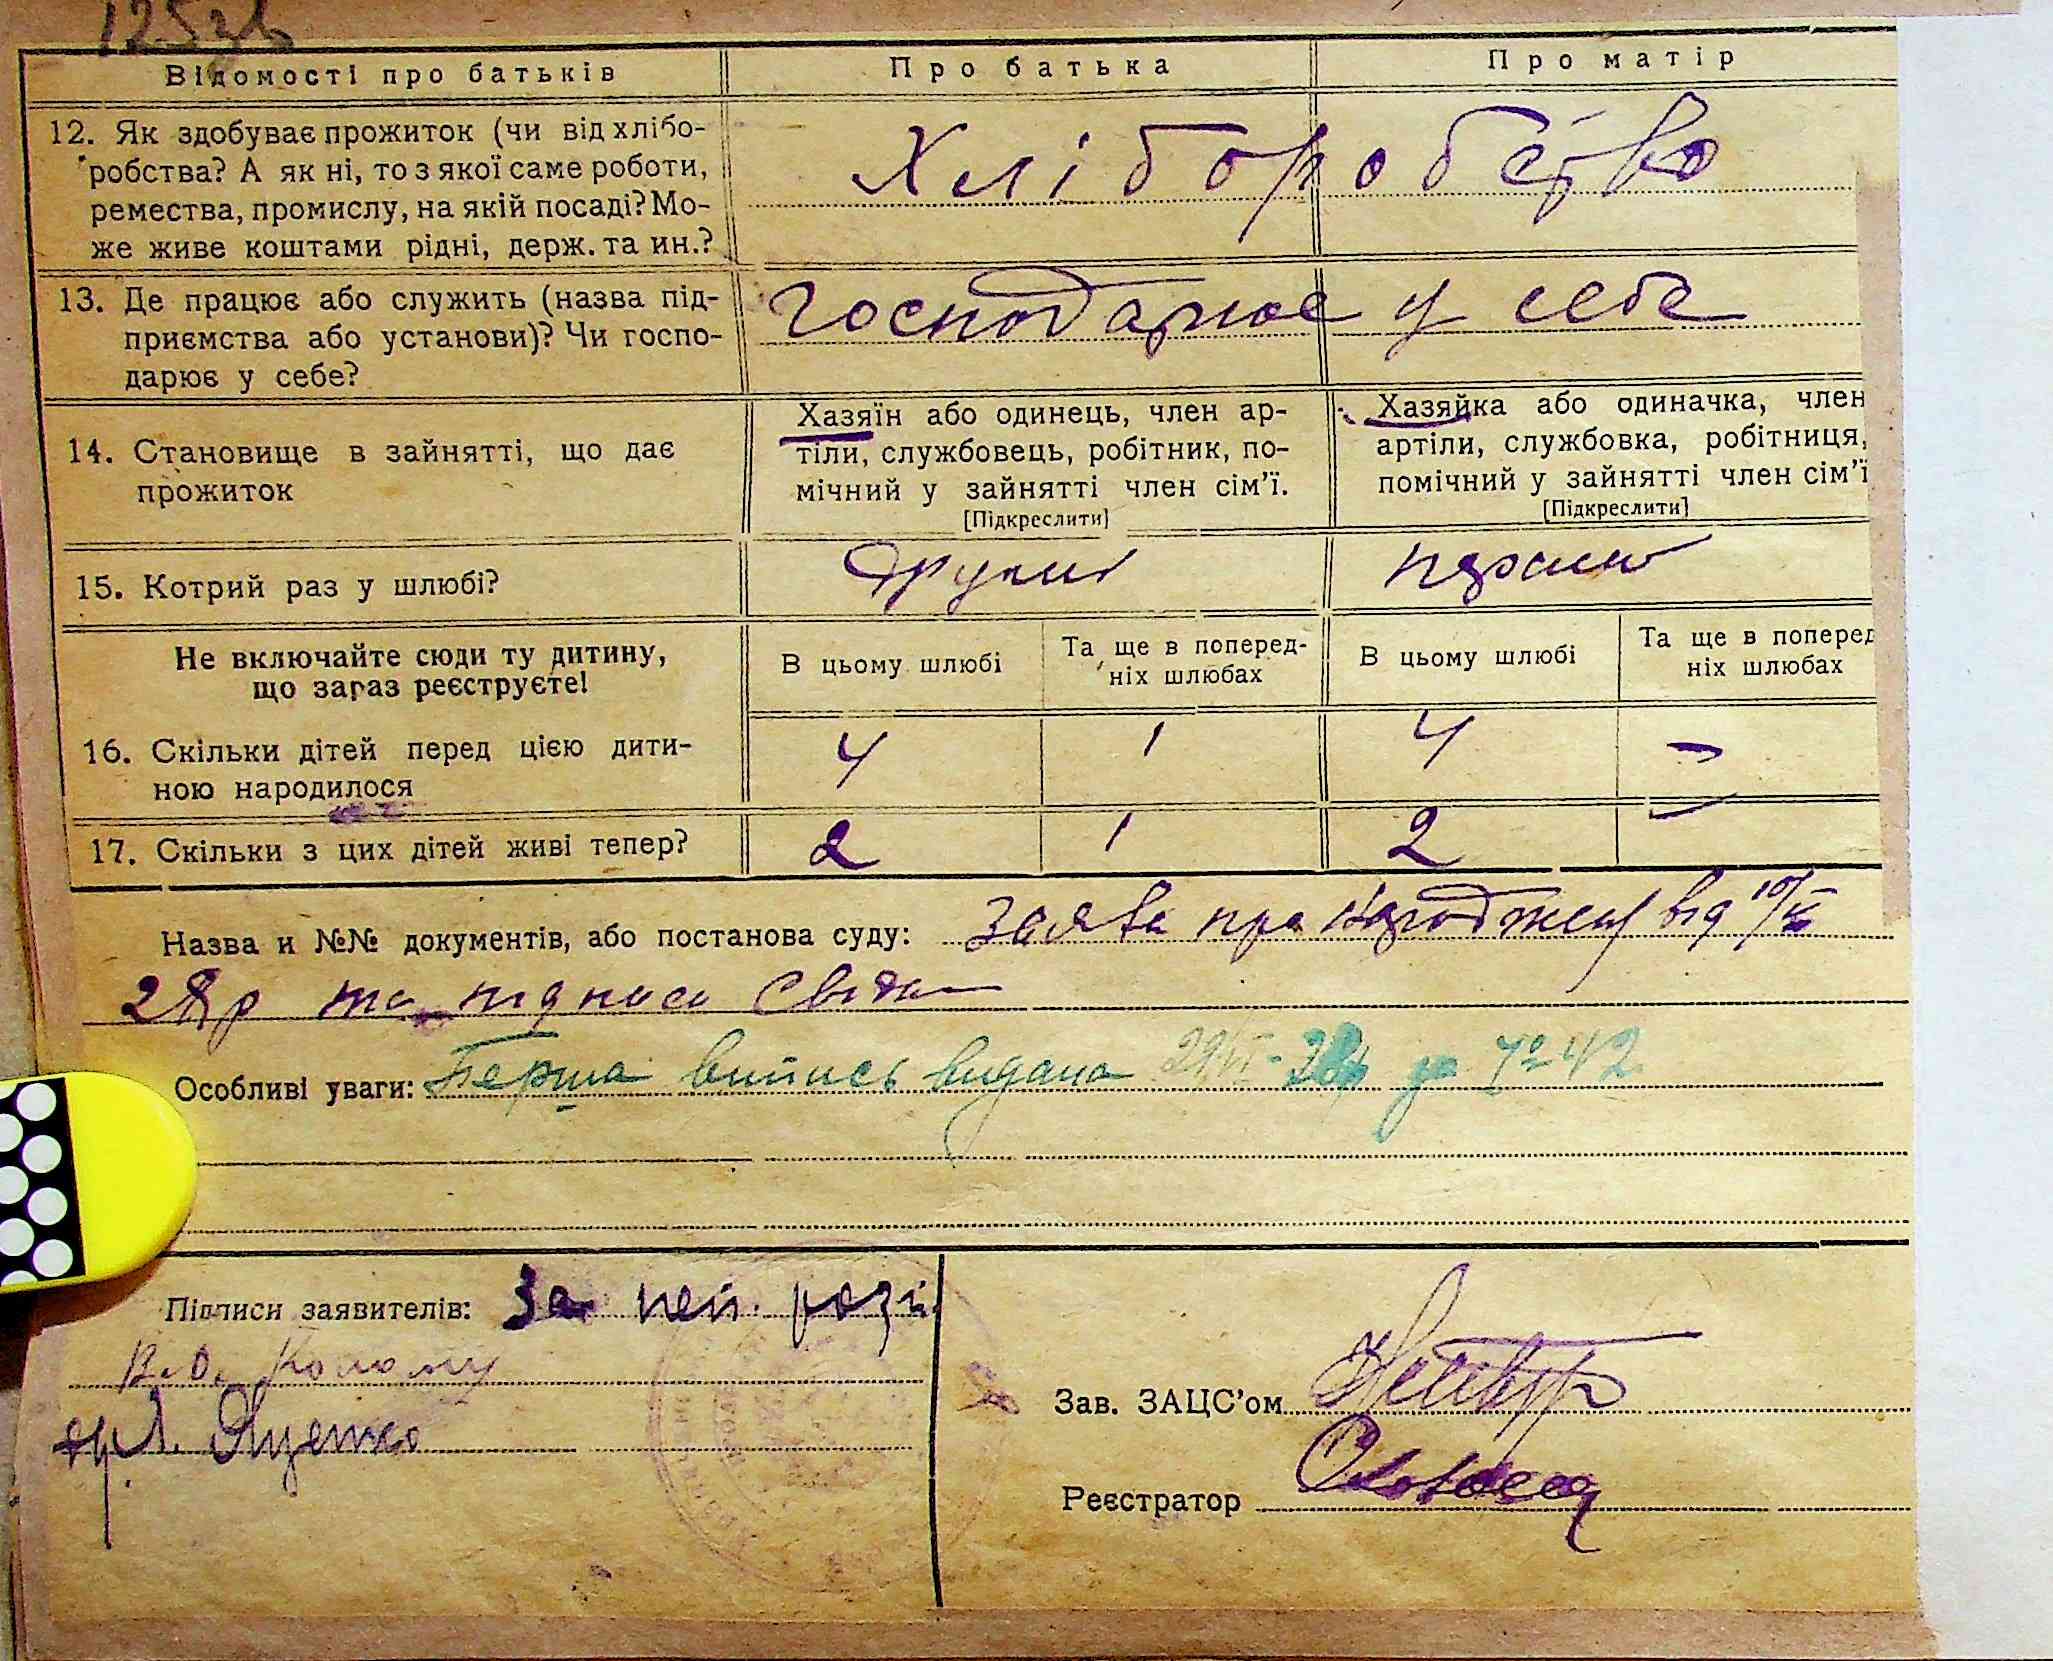 125 зв
Відомості про батьків
Про батька
Про матір
12. Як здобуває прожиток (чи від хлібо-
робства? А як ні, то з якої саме роботи,
ремества, промислу, на якій посаді? Мо-
же живе коштами рідні, держ. та ин.?
Хліборобство
13. Де працює або служить (назва під-
приємства або установи)? Чи госпо-
дарює у себе?
господарює у себе
14. Становище в зайнятті, що дає
прожиток
Хазяїн або одинець, член ар-
тіли, службовець, робітник, по-
мічний у зайнятті член сім'ї.
[Підкреслити]
Хазяйка або одиначка, член
артіли, службовка, робітниця,
помічний у зайнятті член сім'ї
[Підкреслити]
15. Котрий раз у шлюбі?
другий
перший
Не включайте сюди ту дитину,
що зараз реєструєте!
В цьому шлюбі
Та ще в поперед-
ніх шлюбах
В цьому шлюбі
Та ще в поперед
ніх шлюбах
16. Скільки дітей перед цією дити-
ною народилося
4 1 4 —
17. Скільки з цих дітей живі тепер?
2 1 2 —
Назва и №№ документів, або постанова суду: Заява про народжен від
28 р та підписи
Особливі уваги: Перша випись видана за № 42
Підписи заявителів: За неп. розп.
Яценко
Зав. ЗАЦС'ом
Реєстратор